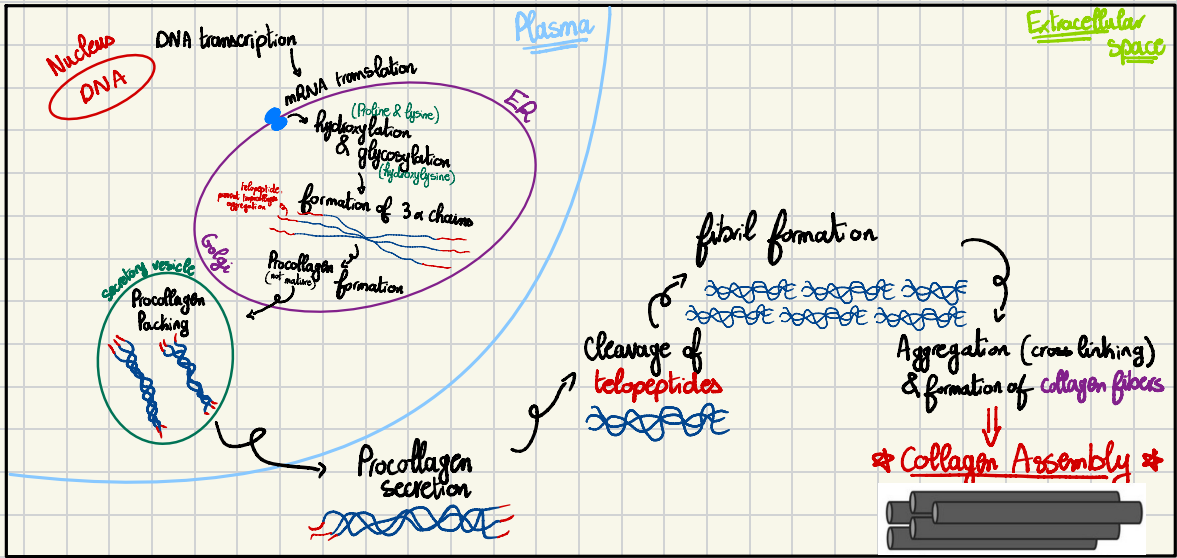 Nucleus
DNA
DNA transcription
Plasma
Extracellular
space
mRNA translation
ER
(Proline & lysine)
hydroxylation
& glycosylation
(hydroxylysine)
telopeptide
prevent tropocollagen
aggregation
formation of 3 α chains
Golgi
Procollagen
(not mature)
formation
secretory vesicle
Procollagen
Packing
Procollagen
secretion
Cleavage of
telopeptides
fibril formation
Aggregation (cross linking)
& formation of collagen fibers
* Collagen Assembly *